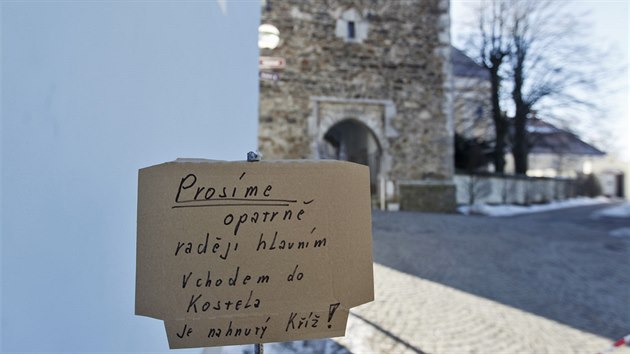 Prosíme
opatrně
raději hlavním
Vchodem do
Kostela
je nahnutý Kříž!